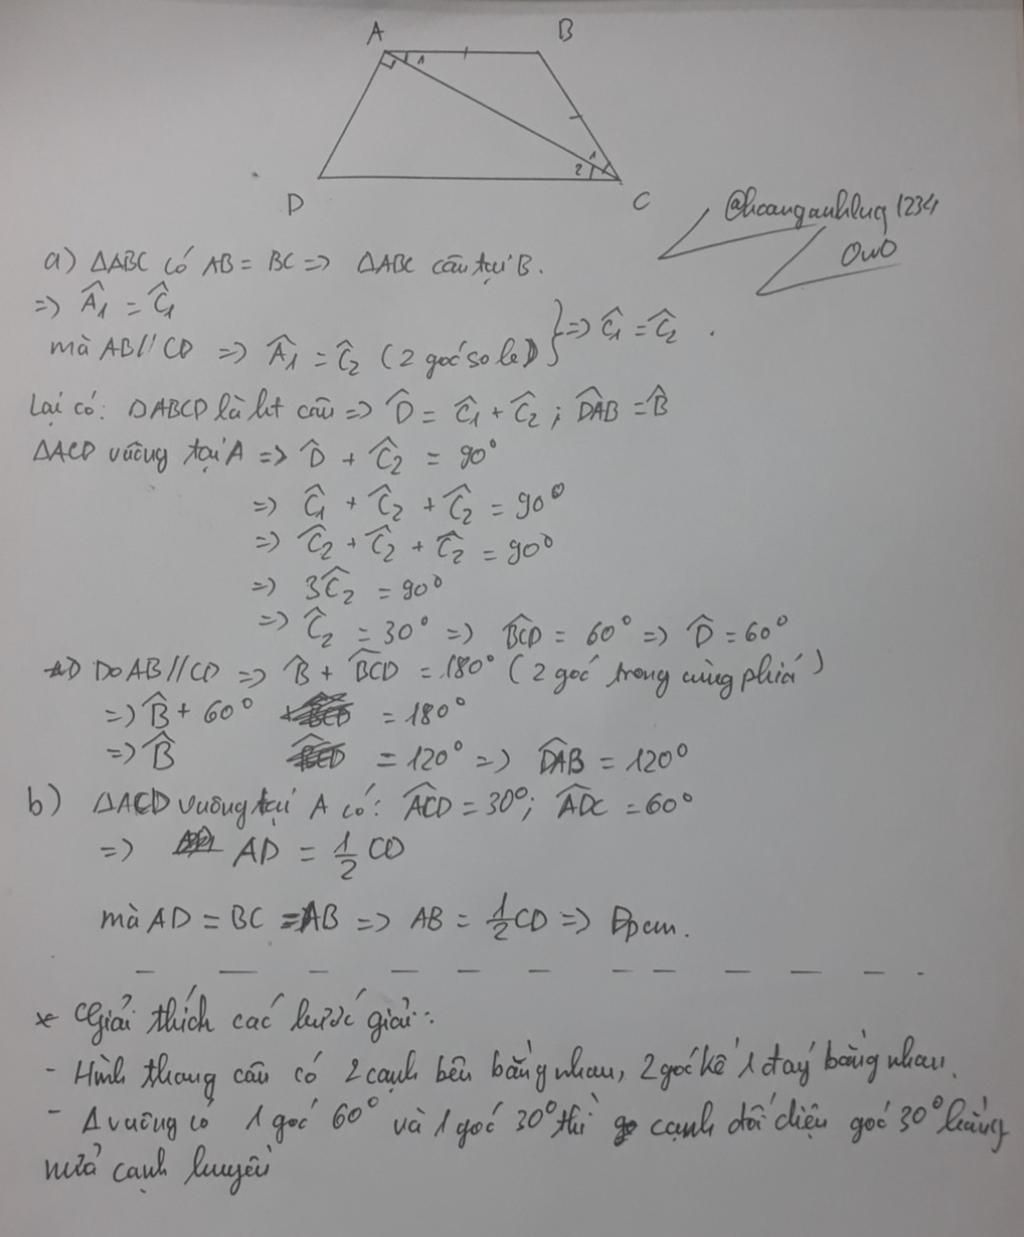 A B
1
1
2
D C
@hoanganhlug1234
OwO
a) ΔABC có AB = BC => ΔABC cân tại B.
=> Â₁ = Ĉ₁
mà AB // CD => Â₁ = Ĉ₂ (2 góc so le) } => Ĉ₁ = Ĉ₂ .
Lại có: ABCD là ht cân => D̂ = Ĉ₁ + Ĉ₂ ; D̂AB = B̂
ΔACD vuông tại A => D̂ + Ĉ₂ = 90°
=> Ĉ₁ + Ĉ₂ + Ĉ₂ = 90°
=> Ĉ₂ + Ĉ₂ + Ĉ₂ = 90°
=> 3Ĉ₂ = 90°
=> Ĉ₂ = 30° => B̂CD = 60° => D̂ = 60°
Do AB // CD => B̂ + B̂CD = 180° (2 góc trong cùng phía)
=> B̂ + 60° = 180°
=> B̂ = 120° => D̂AB = 120°
b) ΔACD vuông tại A có: ÂCD = 30°; ÂDC = 60°
=> AD = 1/2 CD
mà AD = BC = AB => AB = 1/2 CD => Đpcm.
* Giải thích các bước giải:
- Hình thang cân có 2 cạnh bên bằng nhau, 2 góc kề 1 đáy bằng nhau.
- Δ vuông có 1 góc 60° và 1 góc 30° thì cạnh đối diện góc 30° bằng
nửa cạnh huyền